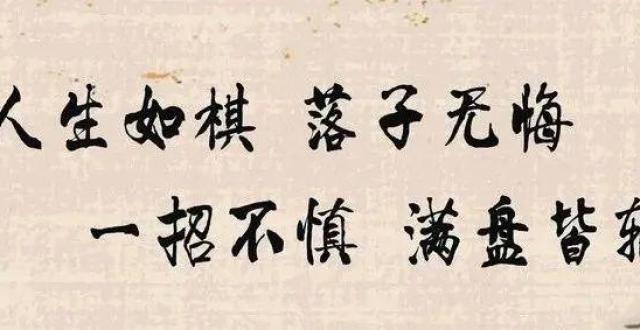 人生如棋 落子无悔
一招不慎 满盘皆